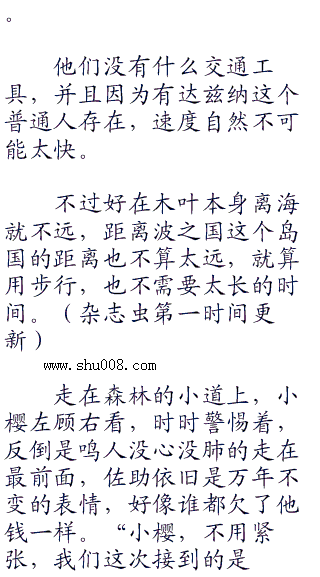 。
他们没有什么交通工
具，并且因为有达兹纳这个
普通人存在，速度自然不可
能太快。
不过好在木叶本身离海
就不远，距离波之国这个岛
国的距离也不算太远，就算
用步行，也不需要太长的时
间。（杂志虫第一时间更
新）
www.shu008.com
走在森林的小道上，小
樱左顾右看，时时警惕着，
反倒是鸣人没心没肺的走在
最前面，佐助依旧是万年不
变的表情，好像谁都欠了他
钱一样。“小樱，不用紧
张，我们这次接到的是